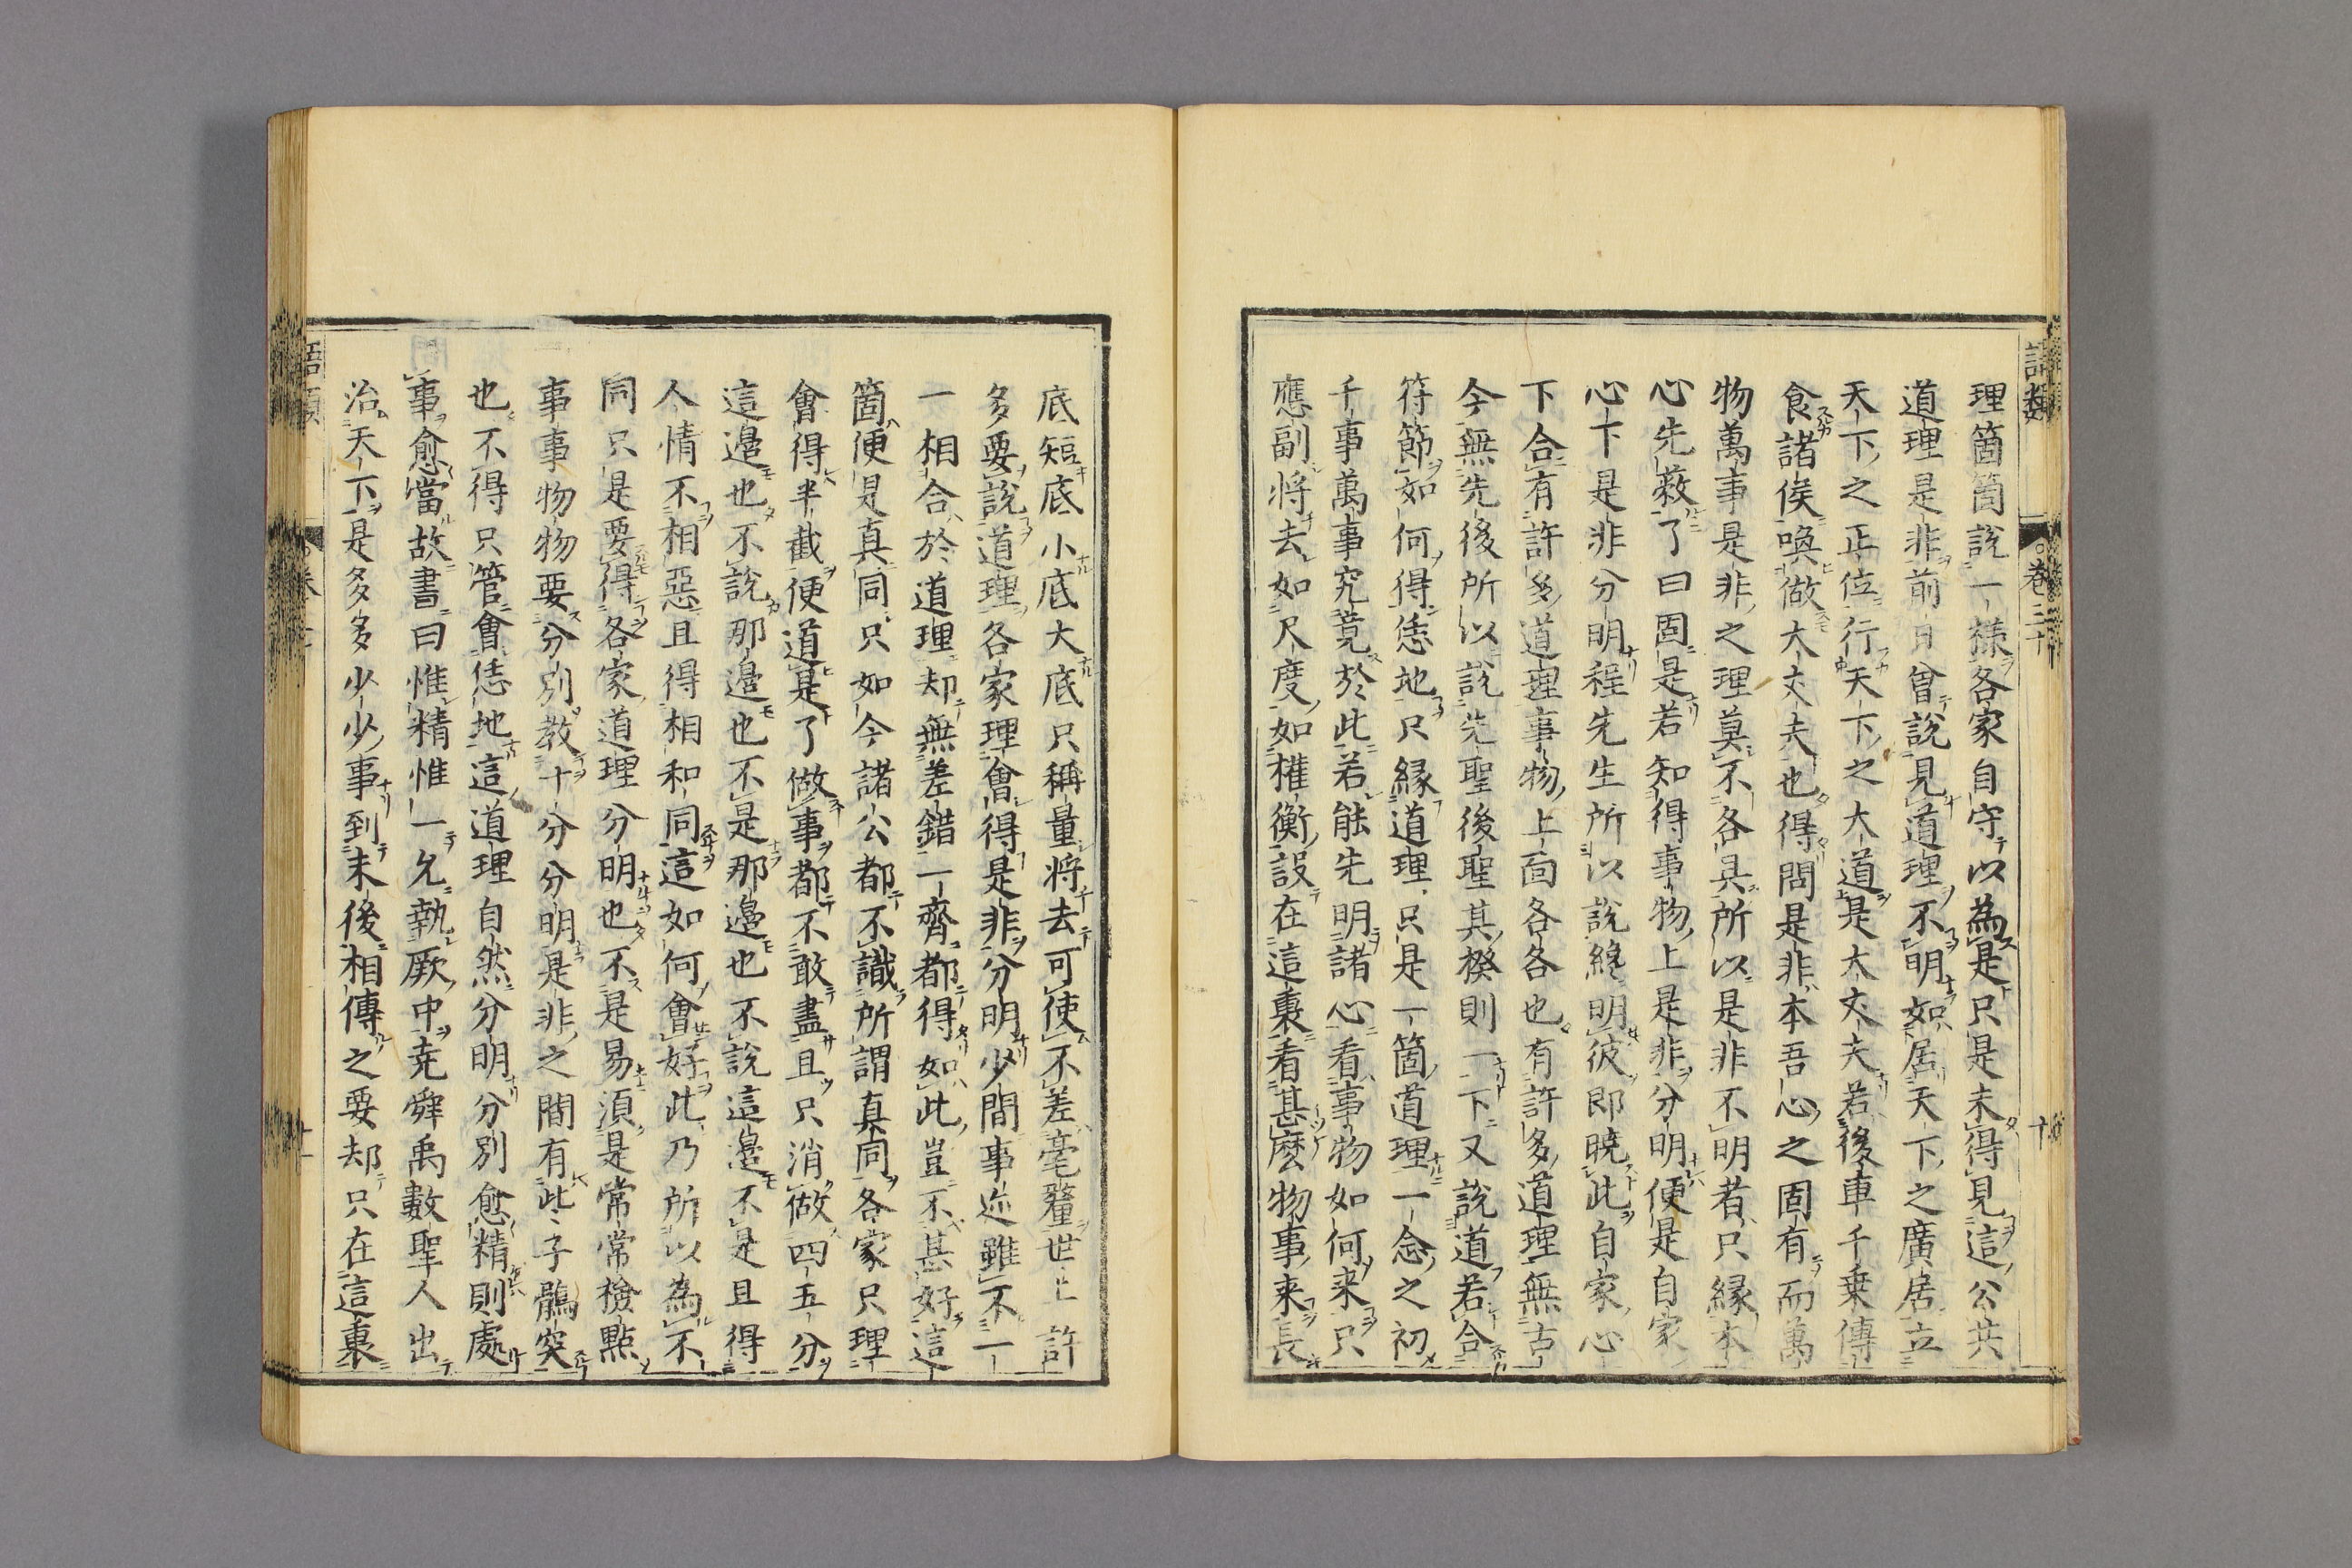 語類
卷三十
十
理箇箇說一樣各家自守以為是只是未得見這公共
道理是非前日曾說見道理不明如居天下之廣居立
天下之正位行天下之大道是大丈夫若後車千乗傳
食諸侯喚做大丈夫也得問是非本吾心之固有而萬
物萬事是非之理莫不各具所以是非不明者只縁本
心先蔽了曰固是若知得事物上是非分明便是自家
心下是非分明程先生所以說纔明彼即曉此自家心
下合有許多道理事物上面各各也有許多道理無古
今無先後所以說先聖後聖其揆則一下又說道若合
符節如何得恁地只縁道理只是一箇道理一念之初
千事萬事究竟於此若能先明諸心看事物如何来只
應副将去如尺度如權衡設在這裏看甚麽物事来長
底短底小底大底只稱量将去可使不差毫釐世上許
多要說道理各家理會得是非分明少間事迹雖不一
一相合於道理却無差錯一齊都得如此豈不甚好這
箇便是真同只如今諸公都不識所謂真同各家只理
會得半截便道是了做事都不敢盡且只消做四五分
這邉也不說那邉也不是那邉也不說這邉不是且得
人情不相惡且得相和同這如何會好此乃所以為不
同只是要得各家道理分明也不是易須是常常檢點
事事物物要分別教十分分明是非之間有此子鶻突
也不得只管會恁地這道理自然分明分別愈精則處
事愈當故書曰惟精惟一允執厥中尭舜禹數聖人出
治天下是多多少少事到末後相傳之要却只在這裏
語類